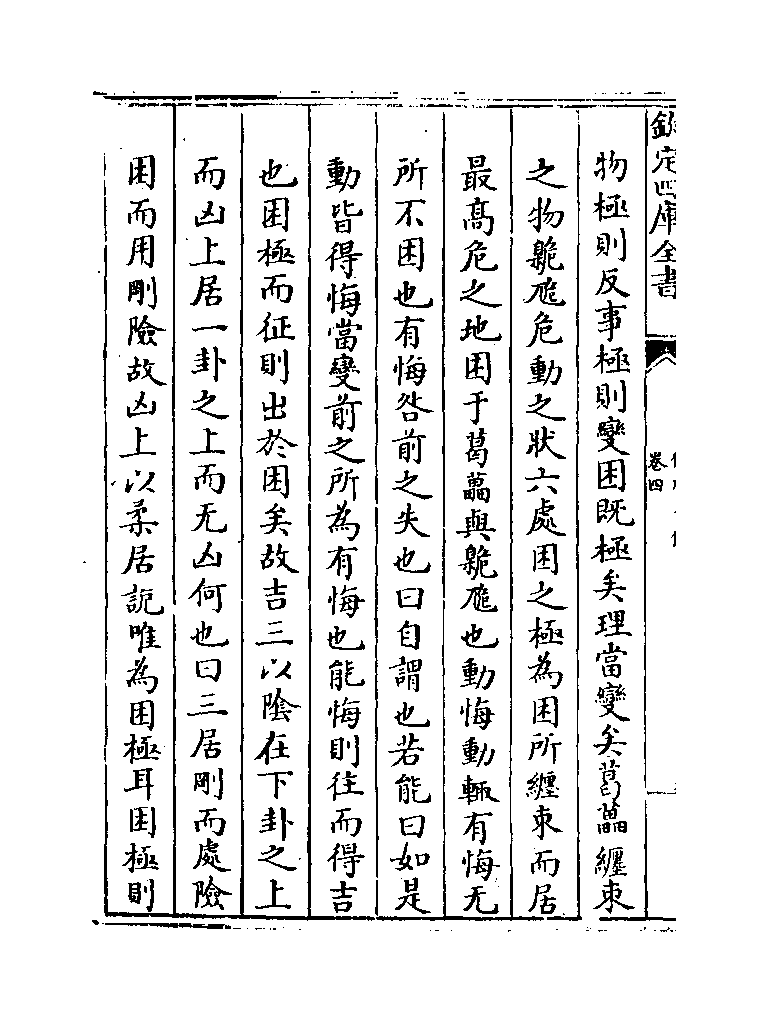 欽定四庫全書
卷四
物極則反事極則變困既極矣理當變矣葛藟纏束
之物臲卼危動之狀六處困之極為困所纏束而居
最高危之地困于葛藟與臲卼也動悔動輒有悔无
所不困也有悔咎前之失也曰自謂也若能曰如是
動皆得悔當變前之所為有悔也能悔則往而得吉
也困極而征則出於困矣故吉三以陰在下卦之上
而凶上居一卦之上而无凶何也曰三居剛而處險
困而用剛險故凶上以柔居說唯為困極耳困極則